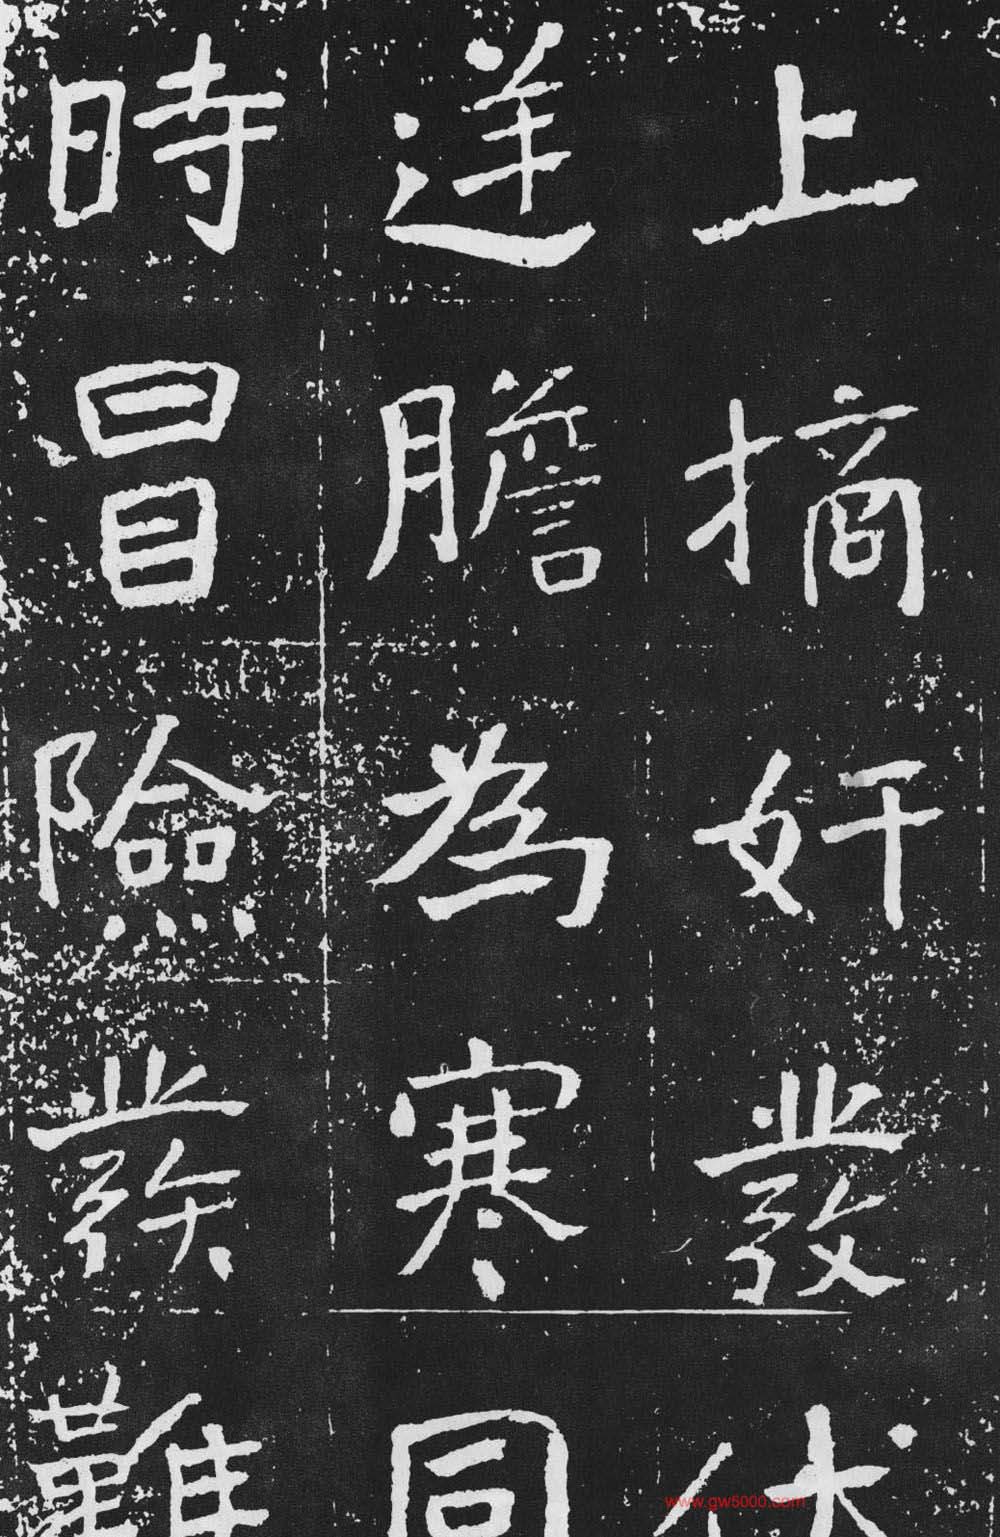 上摘奸發伏
逆膽為寒同
時冒險發難
www.gw5000.com